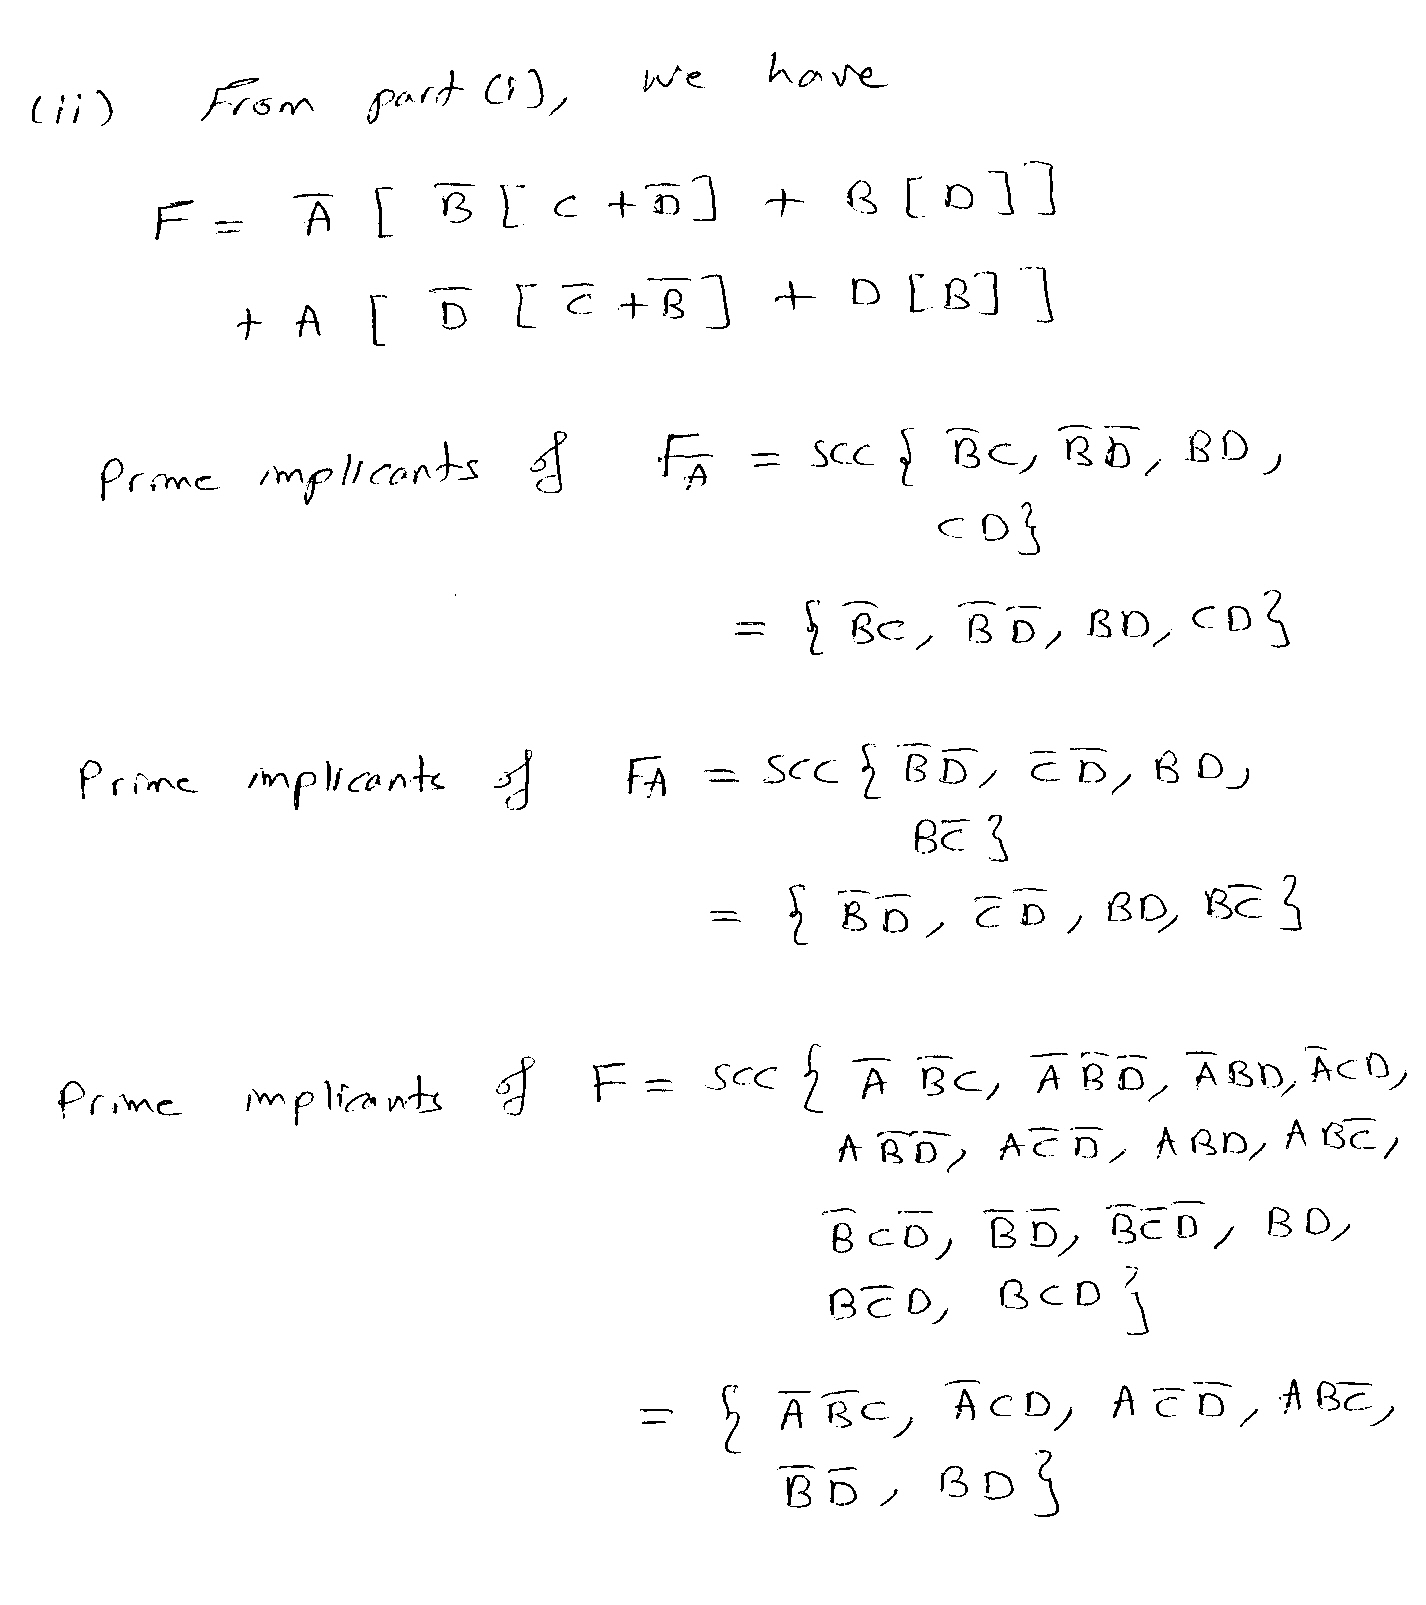 (ii) From part (i), we have
F = A̅ [ B̅ [ C + D̅ ] + B [ D ] ]
+ A [ D̅ [ C̅ + B̅ ] + D [ B ] ]
Prime implicants of F_A̅ = SCC { B̅C, B̅D̅, BD,
CD}
= { B̅C, B̅D̅, BD, CD}
Prime implicants of F_A = SCC { B̅D̅, C̅D̅, BD,
BC̅ }
= { B̅D̅, C̅D̅, BD, BC̅ }
Prime implicants of F = SCC { A̅B̅C, A̅B̅D̅, A̅BD, A̅CD,
AB̅D̅, AC̅D̅, ABD, ABC̅,
B̅CD̅, B̅D̅, B̅C̅D̅, BD,
BC̅D, BCD }
= { A̅B̅C, A̅CD, AC̅D̅, ABC̅,
B̅D̅, BD }